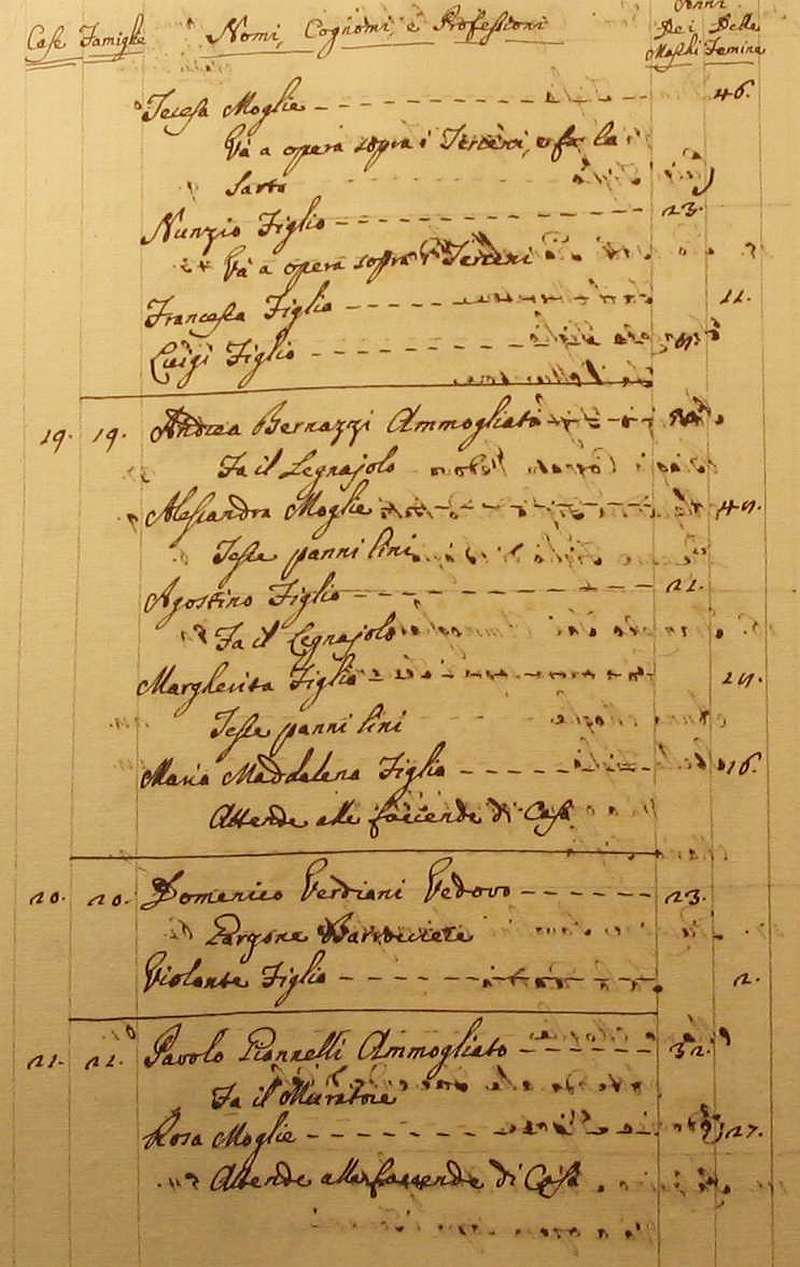 Anni
Case Famiglie Nomi, Cognomi, e Professioni Dei Delle
Maschi Femine
Teresa Moglie 46.
Và a opera sopra i Terreni, e fa la
Sarta
Nunzio Figlio 23.
Và a opera sopra i Terreni
Francesca Figlia 11.
Luigi Figlio
19. 19. Andrea Bernazzi Ammogliato
Fa il Legnajolo
Alessandra Moglie
Tesse panni lini
Agostino Figlio 21.
Fa il Legnajolo
Margherita Figlia
Tesse panni lini
Maria Maddalena Figlia 16.
Attende alle faccende di Casa
20. 20. Domenico Verdiani Vedovo 23.
Garzone
Violante Figlia 2.
21. 21. Pavolo Giannelli Ammogliato 32.
Fa il Muratore
Rosa Moglie 27.
Attende alle faccende di Casa